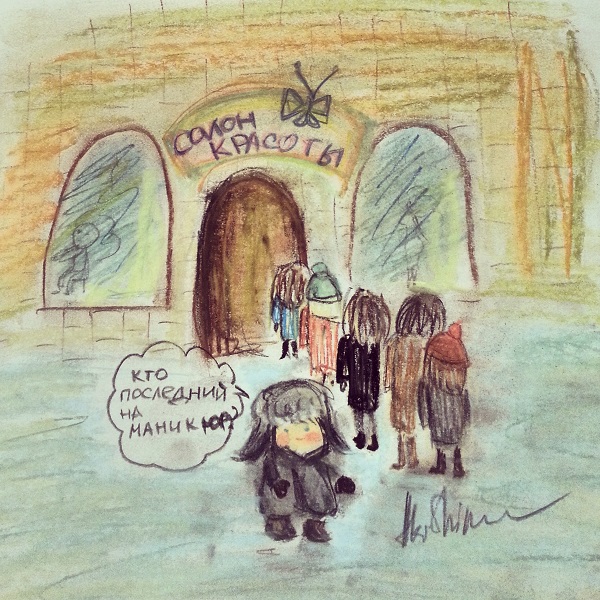 САЛОН
КРАСОТЫ
КТО
ПОСЛЕДНИЙ
НА
МАНИКЮР?